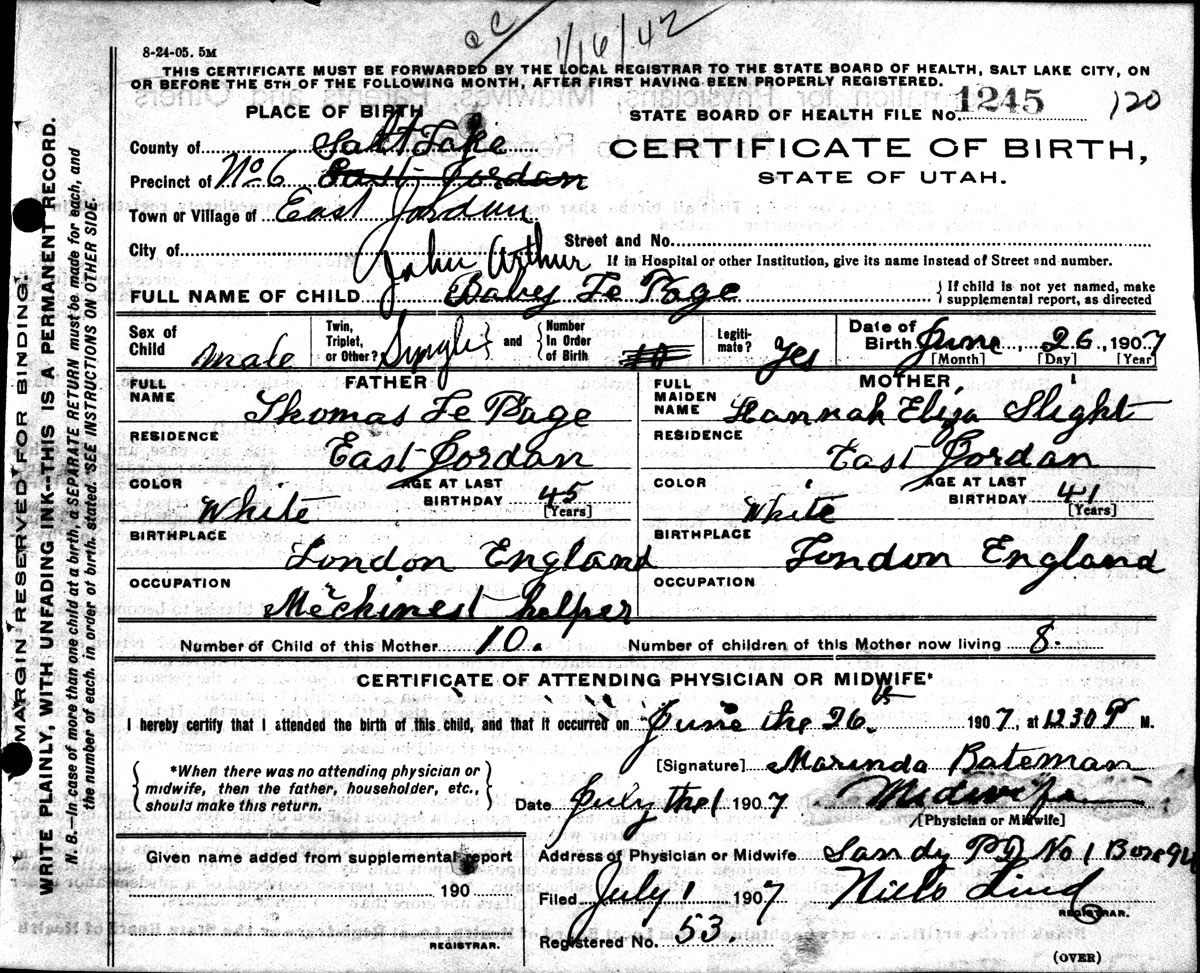 ec 1/16/42
8-24-05. 5M
THIS CERTIFICATE MUST BE FORWARDED BY THE LOCAL REGISTRAR TO THE STATE BOARD OF HEALTH, SALT LAKE CITY, ON
OR BEFORE THE 5TH OF THE FOLLOWING MONTH, AFTER FIRST HAVING BEEN PROPERLY REGISTERED.
PLACE OF BIRTH
STATE BOARD OF HEALTH FILE No. 1245 120
County of Salt Lake
CERTIFICATE OF BIRTH,
STATE OF UTAH.
Precinct of No 6 East Jordan
Town or Village of East Jordan
City of
Street and No.
If in Hospital or other Institution, give its name instead of Street and number.
John Arthur
FULL NAME OF CHILD Baby Le Page
If child is not yet named, make
supplemental report, as directed
Sex of Child Male
Twin, Triplet, or Other? Single and Number In Order of Birth
Legiti-mate? Yes
Date of Birth June, 26, 1907
[Month] [Day] [Year]
FATHER
FULL NAME Thomas Le Page
RESIDENCE East Jordan
COLOR White
AGE AT LAST BIRTHDAY 45 [Years]
BIRTHPLACE London England
OCCUPATION Mechinest helper
MOTHER
FULL MAIDEN NAME Hannah Eliza Slight
RESIDENCE East Jordan
COLOR White
AGE AT LAST BIRTHDAY 41 [Years]
BIRTHPLACE London England
OCCUPATION
Number of Child of this Mother 10. Number of children of this Mother now living 8.
CERTIFICATE OF ATTENDING PHYSICIAN OR MIDWIFE*
I hereby certify that I attended the birth of this child, and that it occurred on June the 26th 1907, at 1230 P M.
*When there was no attending physician or
midwife, then the father, householder, etc.,
should make this return.
[Signature] Marinda Bateman
Date July the 1 1907 Midwife
[Physician or Midwife]
Given name added from supplemental report
190
REGISTRAR.
Address of Physician or Midwife Sandy RD No 1 Box 94
Filed July 1 1907 Niels Lind
REGISTRAR.
Registered No. 53.
(OVER)
MARGIN RESERVED FOR BINDING.
WRITE PLAINLY, WITH UNFADING INK--THIS IS A PERMANENT RECORD.
N. B.--In case of more than one child at a birth, a SEPARATE RETURN must be made for each, and
the number of each, in order of birth, stated. SEE INSTRUCTIONS ON OTHER SIDE.